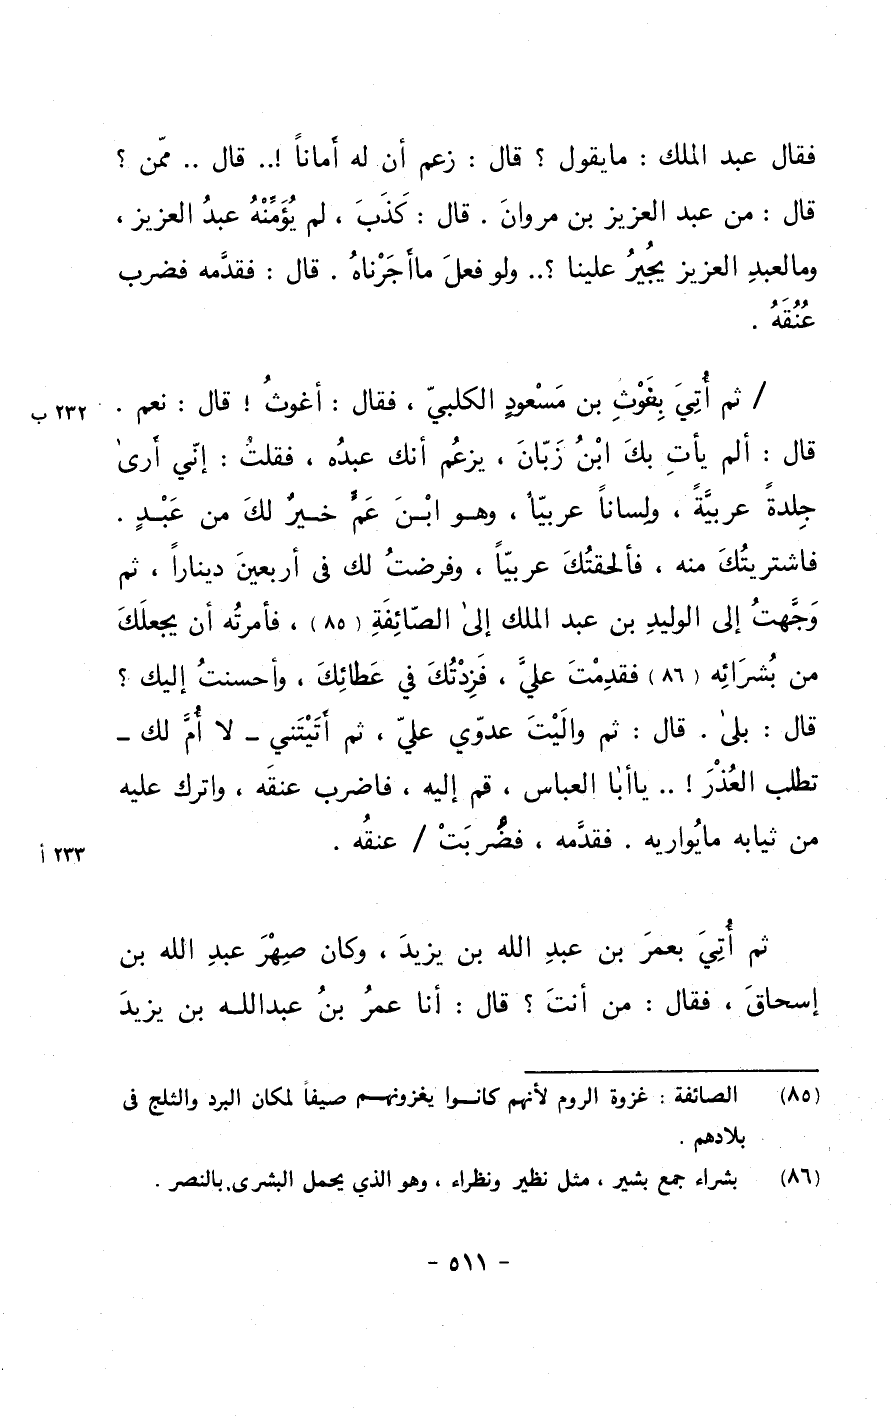 فقال عبد الملك : مايقول ؟ قال : زعم أن له أَماناً !.. قال .. ممّن ؟
قال : من عبد العزيز بن مروانَ . قال : كَذَبَ ، لم يُؤَمِّنْهُ عبدُ العزيز ،
ومالعبدِ العزيز يُجِيرُ علينا ؟.. ولو فعلَ ماأَجَرْناهُ . قال : فقدَّمه فضرب
عُنُقَهُ .
/ ثم أُتِيَ بِغَوْثِ بن مَسْعودٍ الكلبيّ ، فقال : أغوثُ ! قال : نعم .
٢٣٢ ب
قال : ألم يأتِ بكَ ابْنُ زَبّانَ ، يزعُم أنك عبدُه ، فقلتُ : إنّي أَرىٰ
جِلدةً عربيَّةً ، ولِساناً عربيّاً ، وهــو ابْــنَ عَمٍّ خــيرٌ لكَ من عَبْــدٍ .
فاشتريتُكَ منه ، فألحقتُكَ عربيّاً ، وفرضتُ لك فى أربعينَ ديناراً ، ثم
وَجَّهتُ إلى الوليدِ بن عبد الملك إلىٰ الصّائِفَةِ (٨٥) ، فأمرتُه أن يجعلَكَ
من بُشرَائِه (٨٦) فقدِمْتَ عليَّ ، فَزِدْتُكَ في عَطائِكَ ، وأحسنتُ إليك ؟
قال : بلىٰ . قال : ثم والَيْتَ عدوّي عليّ ، ثم أَتَيْتَني ـ لا أُمَّ لك ـ
تطلب العُذْرَ ! .. ياأبا العباس ، قم إليه ، فاضرب عنقَه ، واترك عليه
من ثيابه مايُواريه . فقدَّمه ، فضُرِبَتْ / عنقُه .
٢٣٣ أ
ثم أُتِيَ بعمرَ بن عبدِ الله بن يزيدَ ، وكان صِهْرَ عبدِ الله بن
إسحاقَ ، فقال : من أنتَ ؟ قال : أنا عمرُ بنُ عبداللــه بن يزيدَ
(٨٥) الصائفة : غزوة الروم لأنهم كانــوا يغزونهــم صيفاً لمكان البرد والثلج فى
بلادهم .
(٨٦) بشراء جمع بشير ، مثل نظير ونظراء ، وهو الذي يحمل البشرى بالنصر .
- ٥١١ -